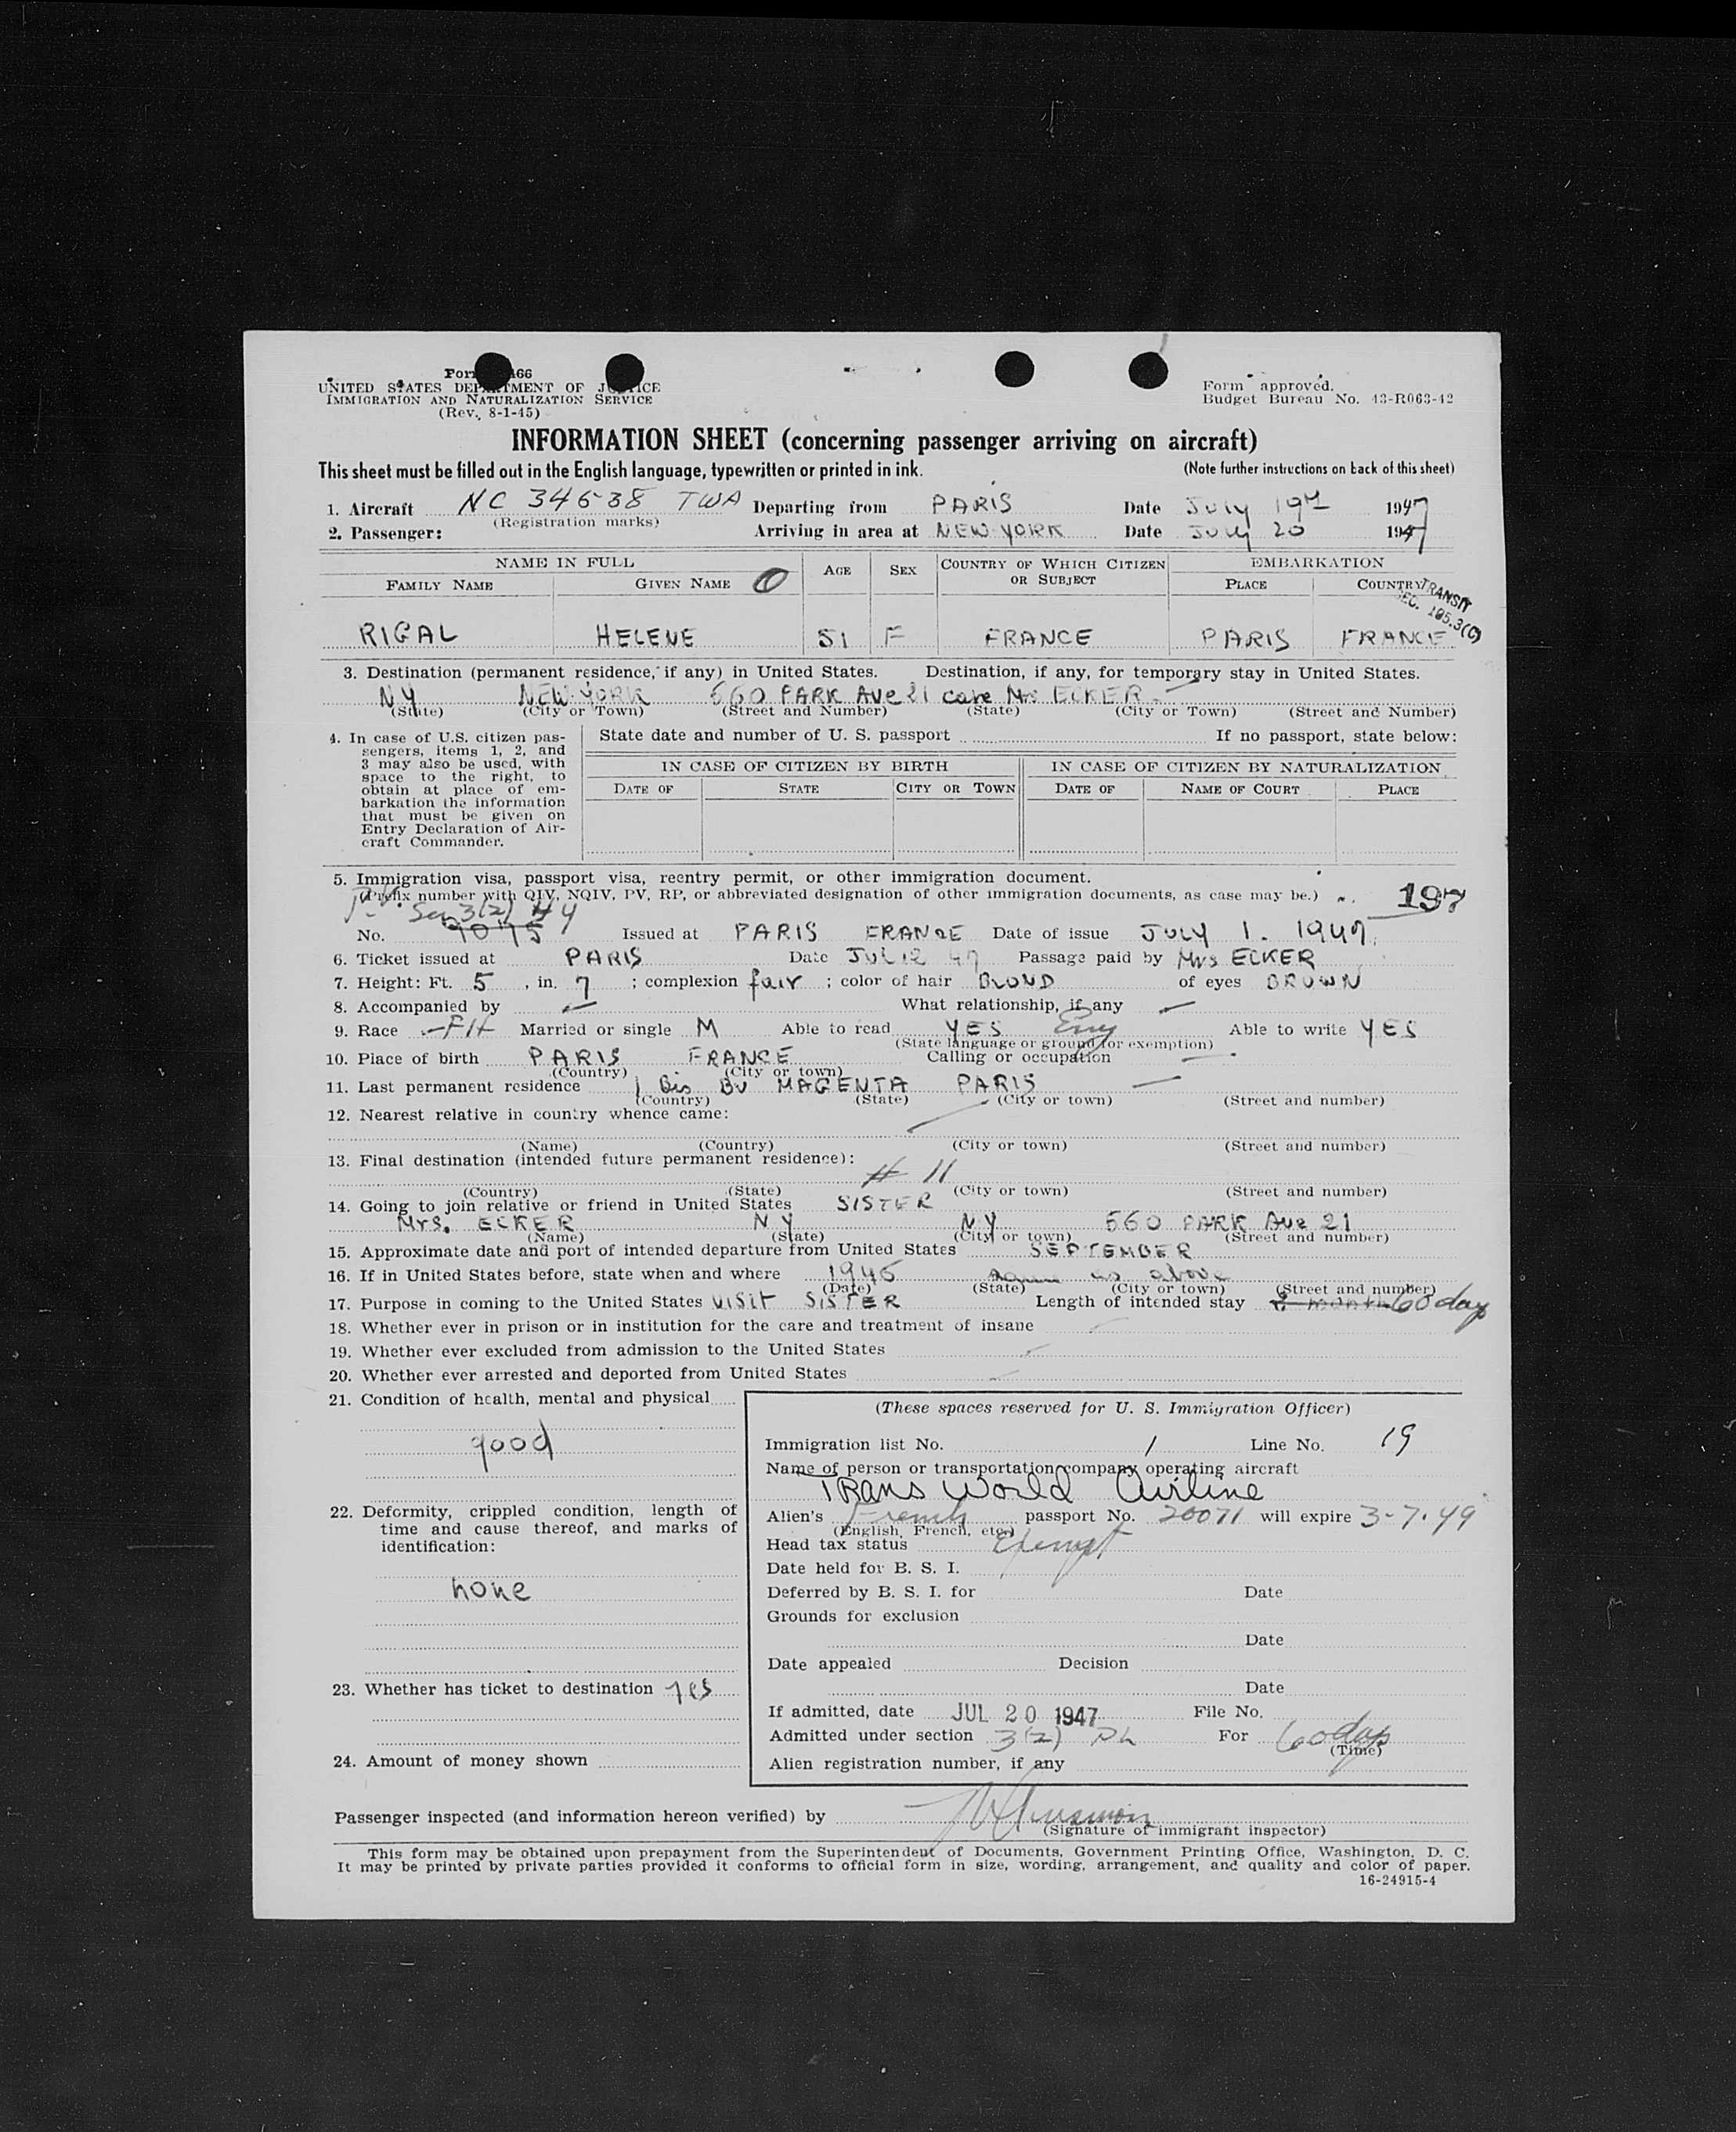 Form 466
UNITED STATES DEPARTMENT OF JUSTICE
IMMIGRATION AND NATURALIZATION SERVICE
(Rev. 8-1-45)
Form approved.
Budget Bureau No. 43-R063-42
INFORMATION SHEET (concerning passenger arriving on aircraft)
This sheet must be filled out in the English language, typewritten or printed in ink. (Note further instructions on back of this sheet)
1. Aircraft NC 34538 TWA Departing from PARIS Date July 19 1947
(Registration marks)
2. Passenger: Arriving in area at NEW YORK Date July 20 1947
NAME IN FULL AGE SEX COUNTRY OF WHICH CITIZEN OR SUBJECT EMBARKATION
FAMILY NAME GIVEN NAME PLACE COUNTRY
TRANSIT
SEC. 195.3(C)
RIGAL HELENE 51 F FRANCE PARIS FRANCE
3. Destination (permanent residence, if any) in United States. Destination, if any, for temporary stay in United States.
NY NEW YORK 560 PARK AVE 21 care Mrs ECKER
(State) (City or Town) (Street and Number) (State) (City or Town) (Street and Number)
4. In case of U.S. citizen passengers, items 1, 2, and 3 may also be used, with space to the right, to obtain at place of embarkation the information that must be given on Entry Declaration of Aircraft Commander.
State date and number of U. S. passport If no passport, state below:
IN CASE OF CITIZEN BY BIRTH IN CASE OF CITIZEN BY NATURALIZATION
DATE OF STATE CITY OR TOWN DATE OF NAME OF COURT PLACE
5. Immigration visa, passport visa, reentry permit, or other immigration document.
(Prefix number with QIV, NQIV, PV, RP, or abbreviated designation of other immigration documents, as case may be.) 197
Sec 3(2) #4
No. 9075 Issued at PARIS FRANCE Date of issue JULY 1. 1947
6. Ticket issued at PARIS Date JUL 12 47 Passage paid by Mrs ECKER
7. Height: Ft. 5, in. 7; complexion fair; color of hair BLOND of eyes BROWN
8. Accompanied by — What relationship, if any —
9. Race FH Married or single M Able to read YES Eng Able to write YES
(State language or ground for exemption)
10. Place of birth PARIS FRANCE Calling or occupation —
(Country) (City or town)
11. Last permanent residence 1 Bis Bv MAGENTA PARIS —
(Country) (State) (City or town) (Street and number)
12. Nearest relative in country whence came:
(Name) (Country) (City or town) (Street and number)
13. Final destination (intended future permanent residence): # 11
(Country) (State) (City or town) (Street and number)
14. Going to join relative or friend in United States SISTER
Mrs. ECKER NY NY 560 PARK Ave 21
(Name) (State) (City or town) (Street and number)
15. Approximate date and port of intended departure from United States SEPTEMBER
16. If in United States before, state when and where 1946 as above
(Date) (State) (City or town) (Street and number)
17. Purpose in coming to the United States VISIT SISTER Length of intended stay 2 months 60 days
18. Whether ever in prison or in institution for the care and treatment of insane
19. Whether ever excluded from admission to the United States
20. Whether ever arrested and deported from United States
21. Condition of health, mental and physical
good
22. Deformity, crippled condition, length of time and cause thereof, and marks of identification:
none
23. Whether has ticket to destination yes
24. Amount of money shown
(These spaces reserved for U. S. Immigration Officer)
Immigration list No. 1 Line No. 19
Name of person or transportation company operating aircraft
TRans World Airline
Alien's French passport No. 20071 will expire 3-7-49
(English, French, etc.)
Head tax status Exempt
Date held for B. S. I.
Deferred by B. S. I. for Date
Grounds for exclusion
Date
Date appealed Decision
Date
If admitted, date JUL 20 1947 File No.
Admitted under section 3(2) For 60 days
(Time)
Alien registration number, if any
Passenger inspected (and information hereon verified) by
(Signature of immigrant inspector)
This form may be obtained upon prepayment from the Superintendent of Documents, Government Printing Office, Washington, D. C.
It may be printed by private parties provided it conforms to official form in size, wording, arrangement, and quality and color of paper.
16-24915-4